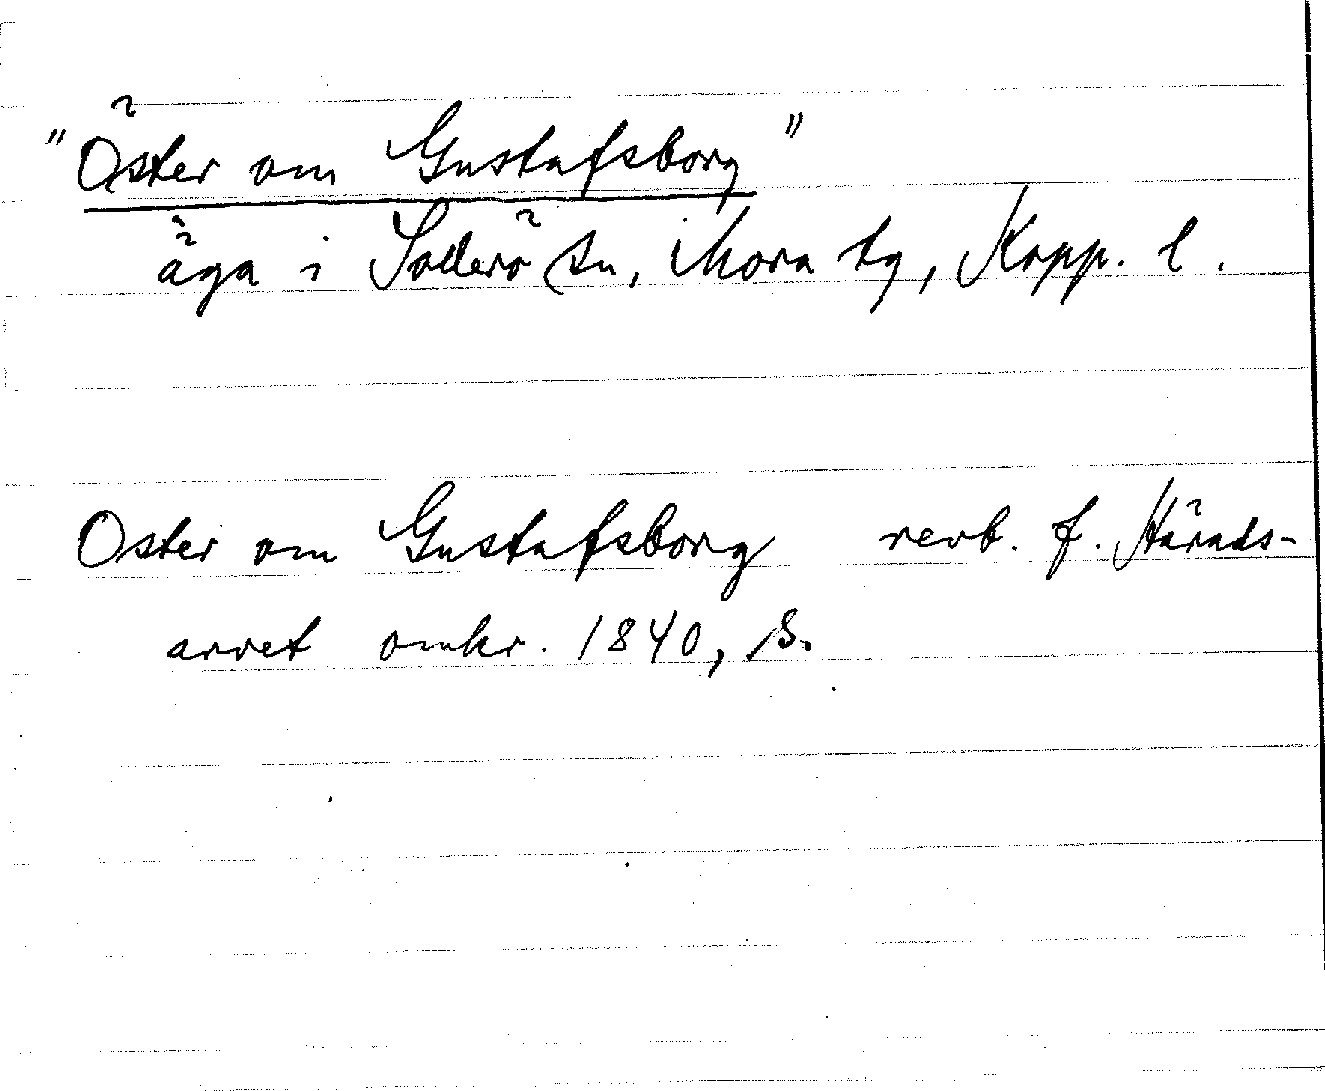 "Öster om Gustafsborg"
äga i Sollerö sn, Mora tg, Kopp. l.
Öster om Gustafsborg revb. f. Härads-
arvet omkr. 1840, S.